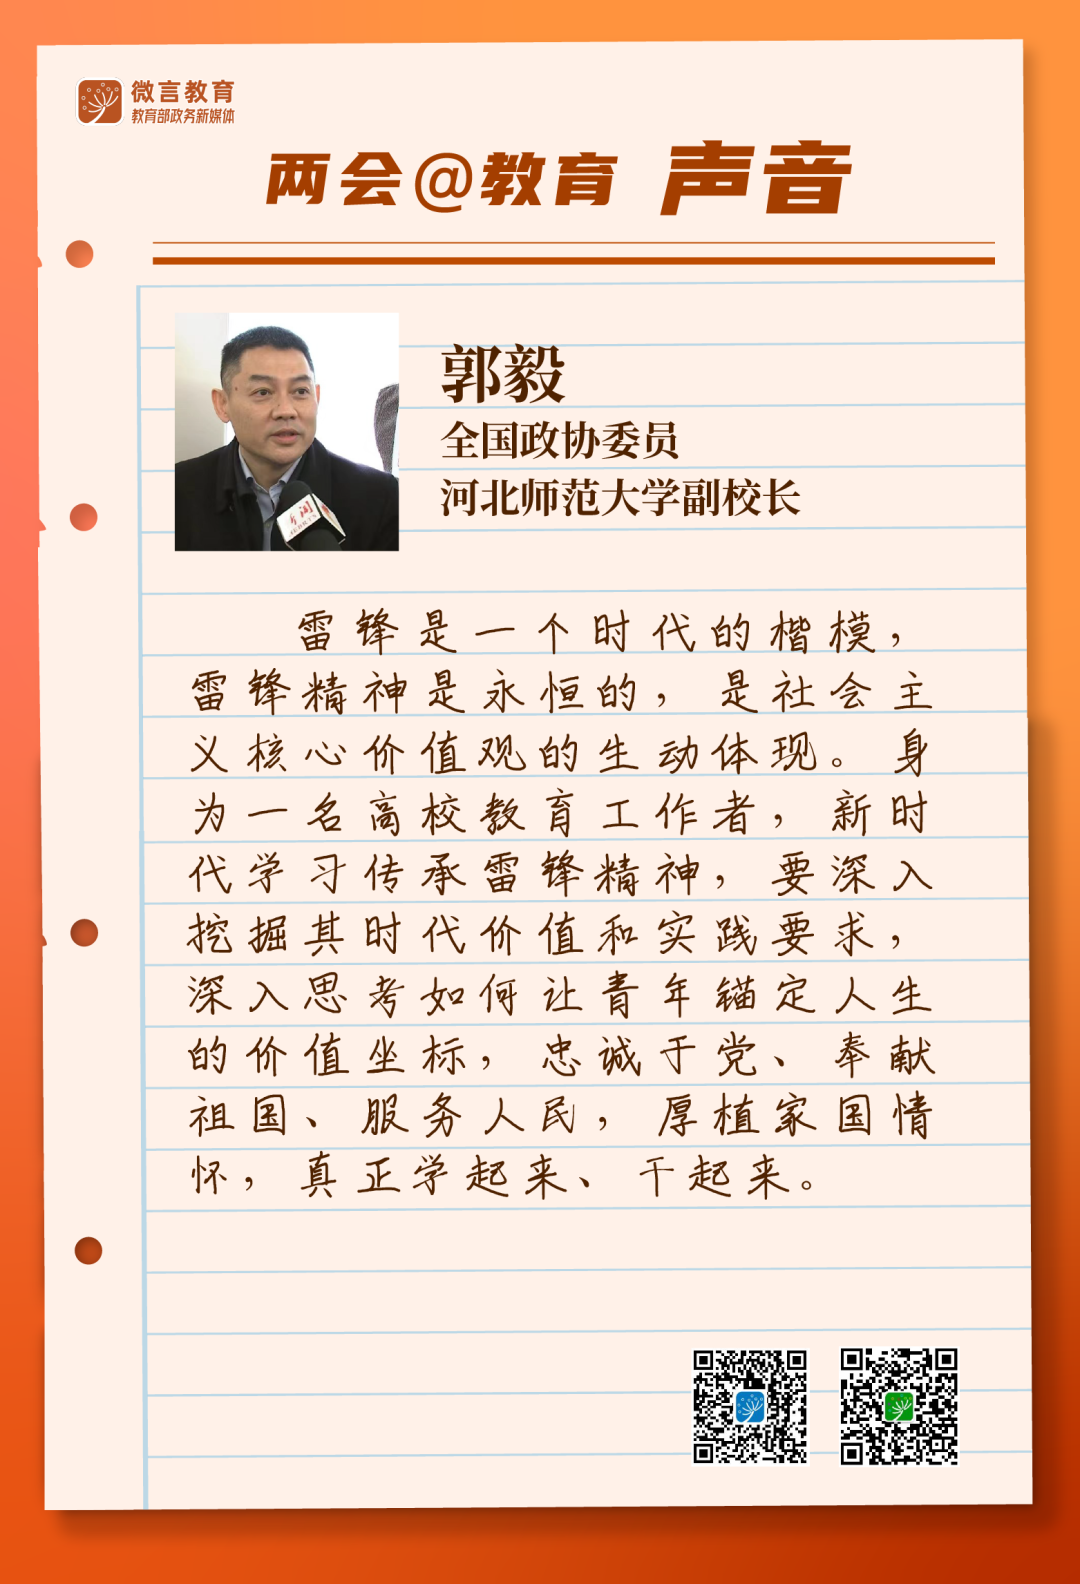 微言教育
教育部政务新媒体
两会@教育 声音
郭毅
全国政协委员
河北师范大学副校长
雷锋是一个时代的楷模，
雷锋精神是永恒的，是社会主
义核心价值观的生动体现。身
为一名高校教育工作者，新时
代学习传承雷锋精神，要深入
挖掘其时代价值和实践要求，
深入思考如何让青年锚定人生
的价值坐标，忠诚于党、奉献
祖国、服务人民，厚植家国情
怀，真正学起来、干起来。